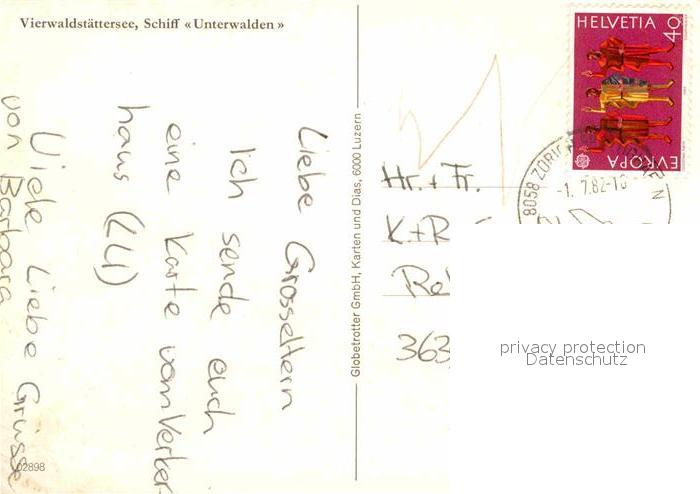 Vierwaldstättersee, Schiff «Unterwalden»
Liebe Grosseltern
Ich sende euch
eine Karte vom Verker
haus (LU)
Viele Liebe Grüsse
von Barbara
02898
Globetrotter GmbH, Karten und Dias, 6000 Luzern
HELVETIA 40
EUROPA
8058 ZÜRICH
-1.7.82-1
Hr. + Fr.
K+R
Re
363
privacy protection
Datenschutz